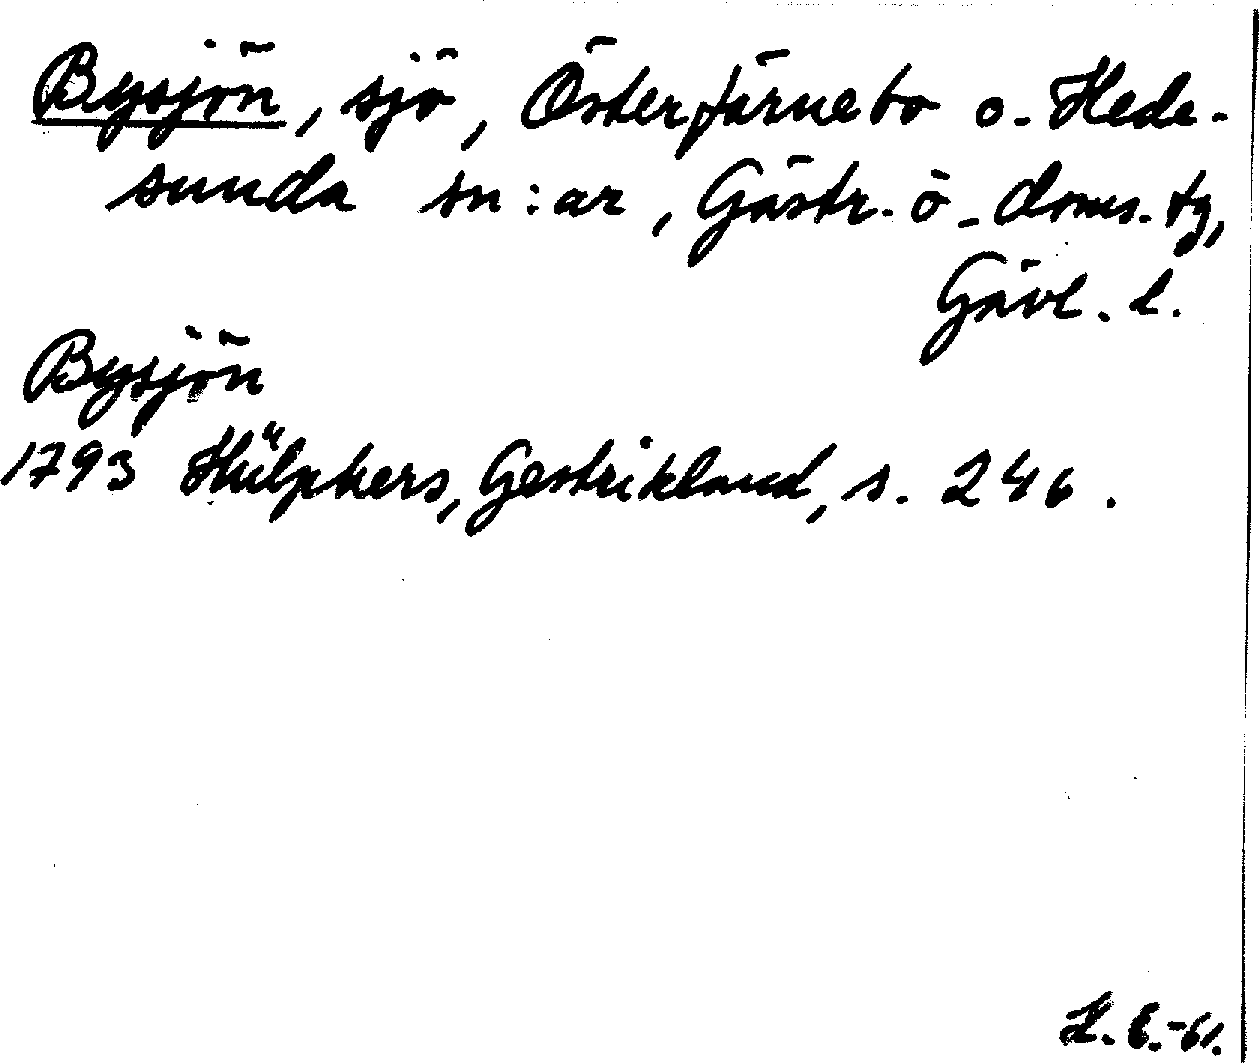 Bysjön, sjö, Österfärnebo o. Hede-
sunda sn:ar, Gästr. ö. doms. tg,
Gävl. l.
Bysjön
1793 Hülphers, Gestrikland, s. 246.
H. E. -61.